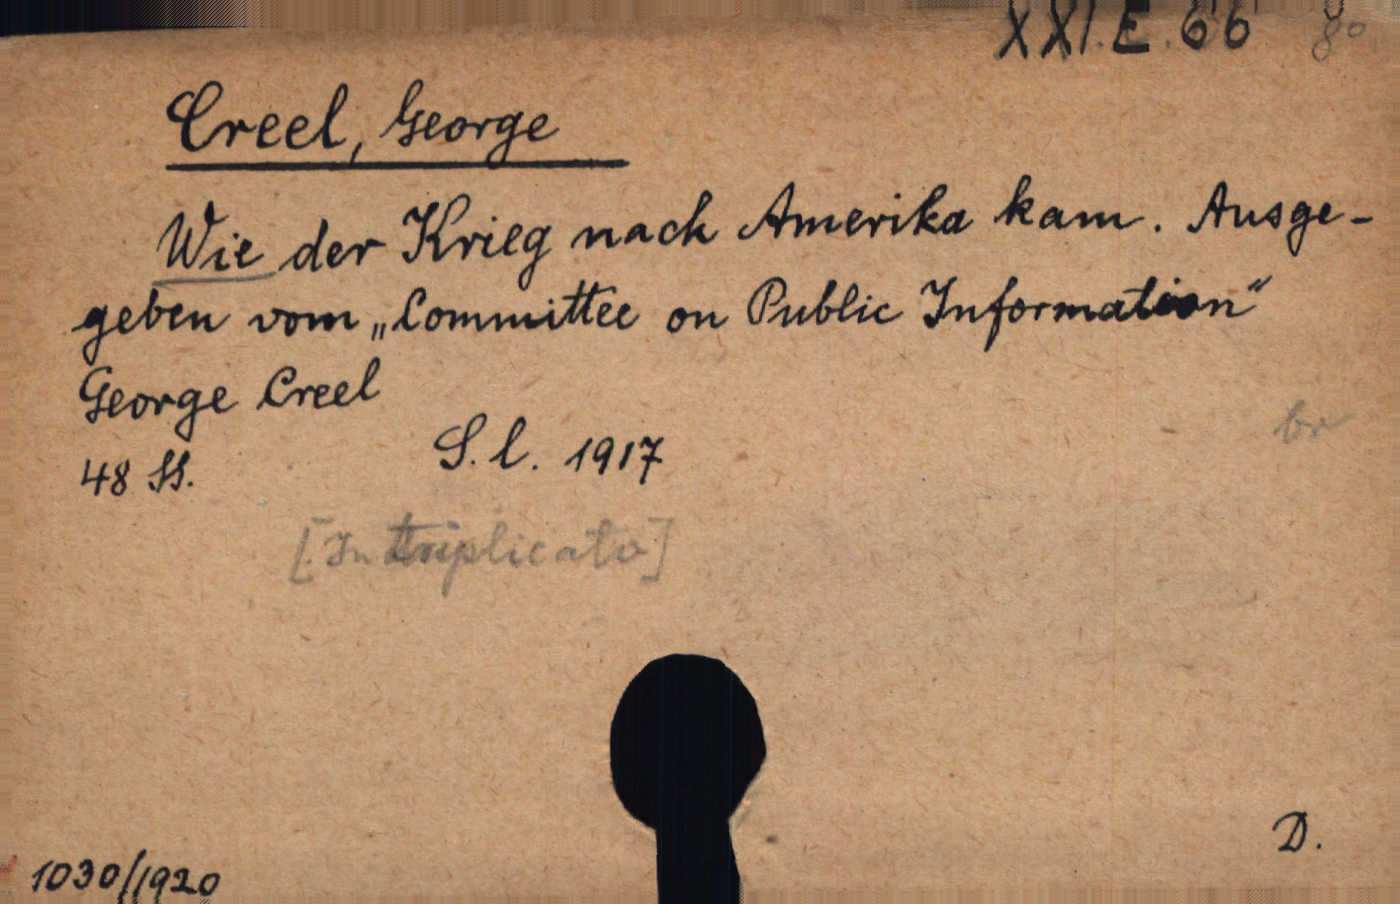 XXI.E.66 8°
Creel, George
Wie der Krieg nach Amerika kam. Ausge-
geben vom „Committee on Public Information“
George Creel
br
48 SS. S. l. 1917
[In triplicato]
D.
1030/1920